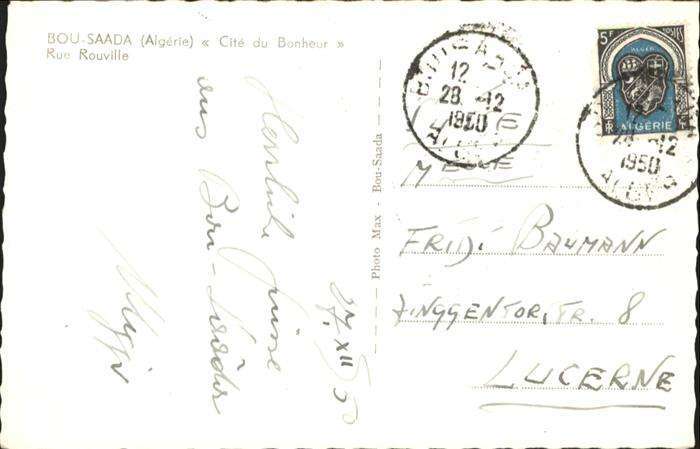 BOU-SAADA (Algérie) « Cité du Bonheur »
Rue Rouville
27. XII 50
Herzliche Grüsse
aus Bou-Saâda
Photo Max - Bou-Saada
BOU SAADA
12
28 -12
1950
ALGER
5F
ALGER
RF ALGÉRIE
28 -12
1950
ALGER
MELLE
FRIDI BAUMANN
ZINGGENTORSTR. 8
LUCERNE